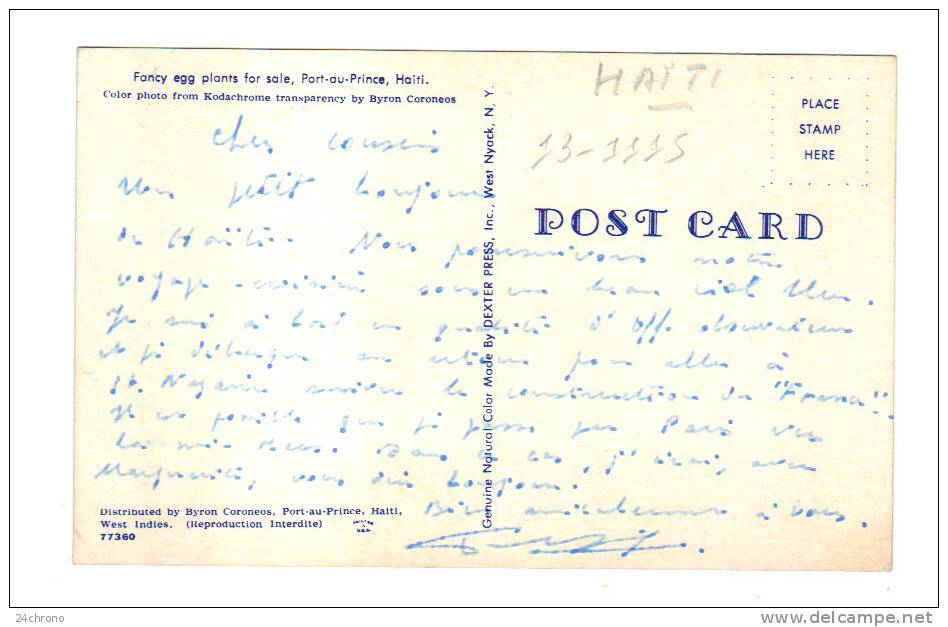 Fancy egg plants for sale, Port-au-Prince, Haiti.
Color photo from Kodachrome transparency by Byron Coroneos
HAÏTI
13-1115
PLACE
STAMP
HERE
POST CARD
Genuine Natural Color Made By DEXTER PRESS, Inc., West Nyack, N. Y.
Chers cousins
Un petit bonjour
de Haïti. Nous poursuivons notre
voyage-croisière sous un beau ciel bleu.
Je suis à bord en qualité d'Off. observateur
et je débarque au retour pour aller à
St. Nazaire suivre la construction du "France".
Il est possible que je passe par Paris vers
la mi-Mars. Dans ce cas, j'irai, avec
Marguerite, vous dire bonjour.
Bien amicalement à vous.
Distributed by Byron Coroneos, Port-au-Prince, Haiti,
West Indies. (Reproduction Interdite)
77360
24chrono
www.delcampe.net